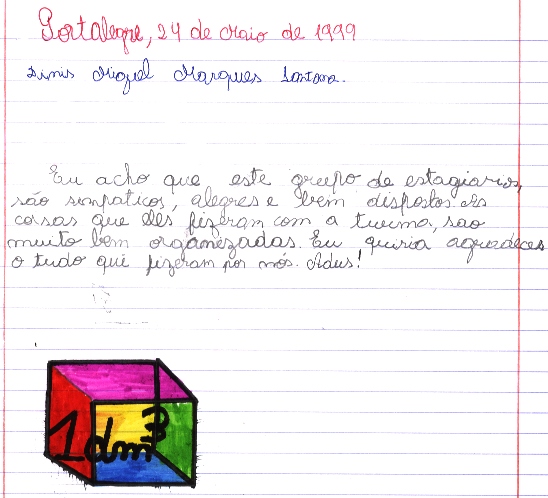 Portalegre, 24 de Maio de 1999
Dinis Miguel Marques Santana.
Eu acho que este grupo de estagiarios,
são simpaticos, alegres e bem dispostos As
coisas que eles fizeram com a turma, sao
muito bem organizadas. Eu quiria agradecer
o tudo que fizeram por nós. Adus!
1dm³